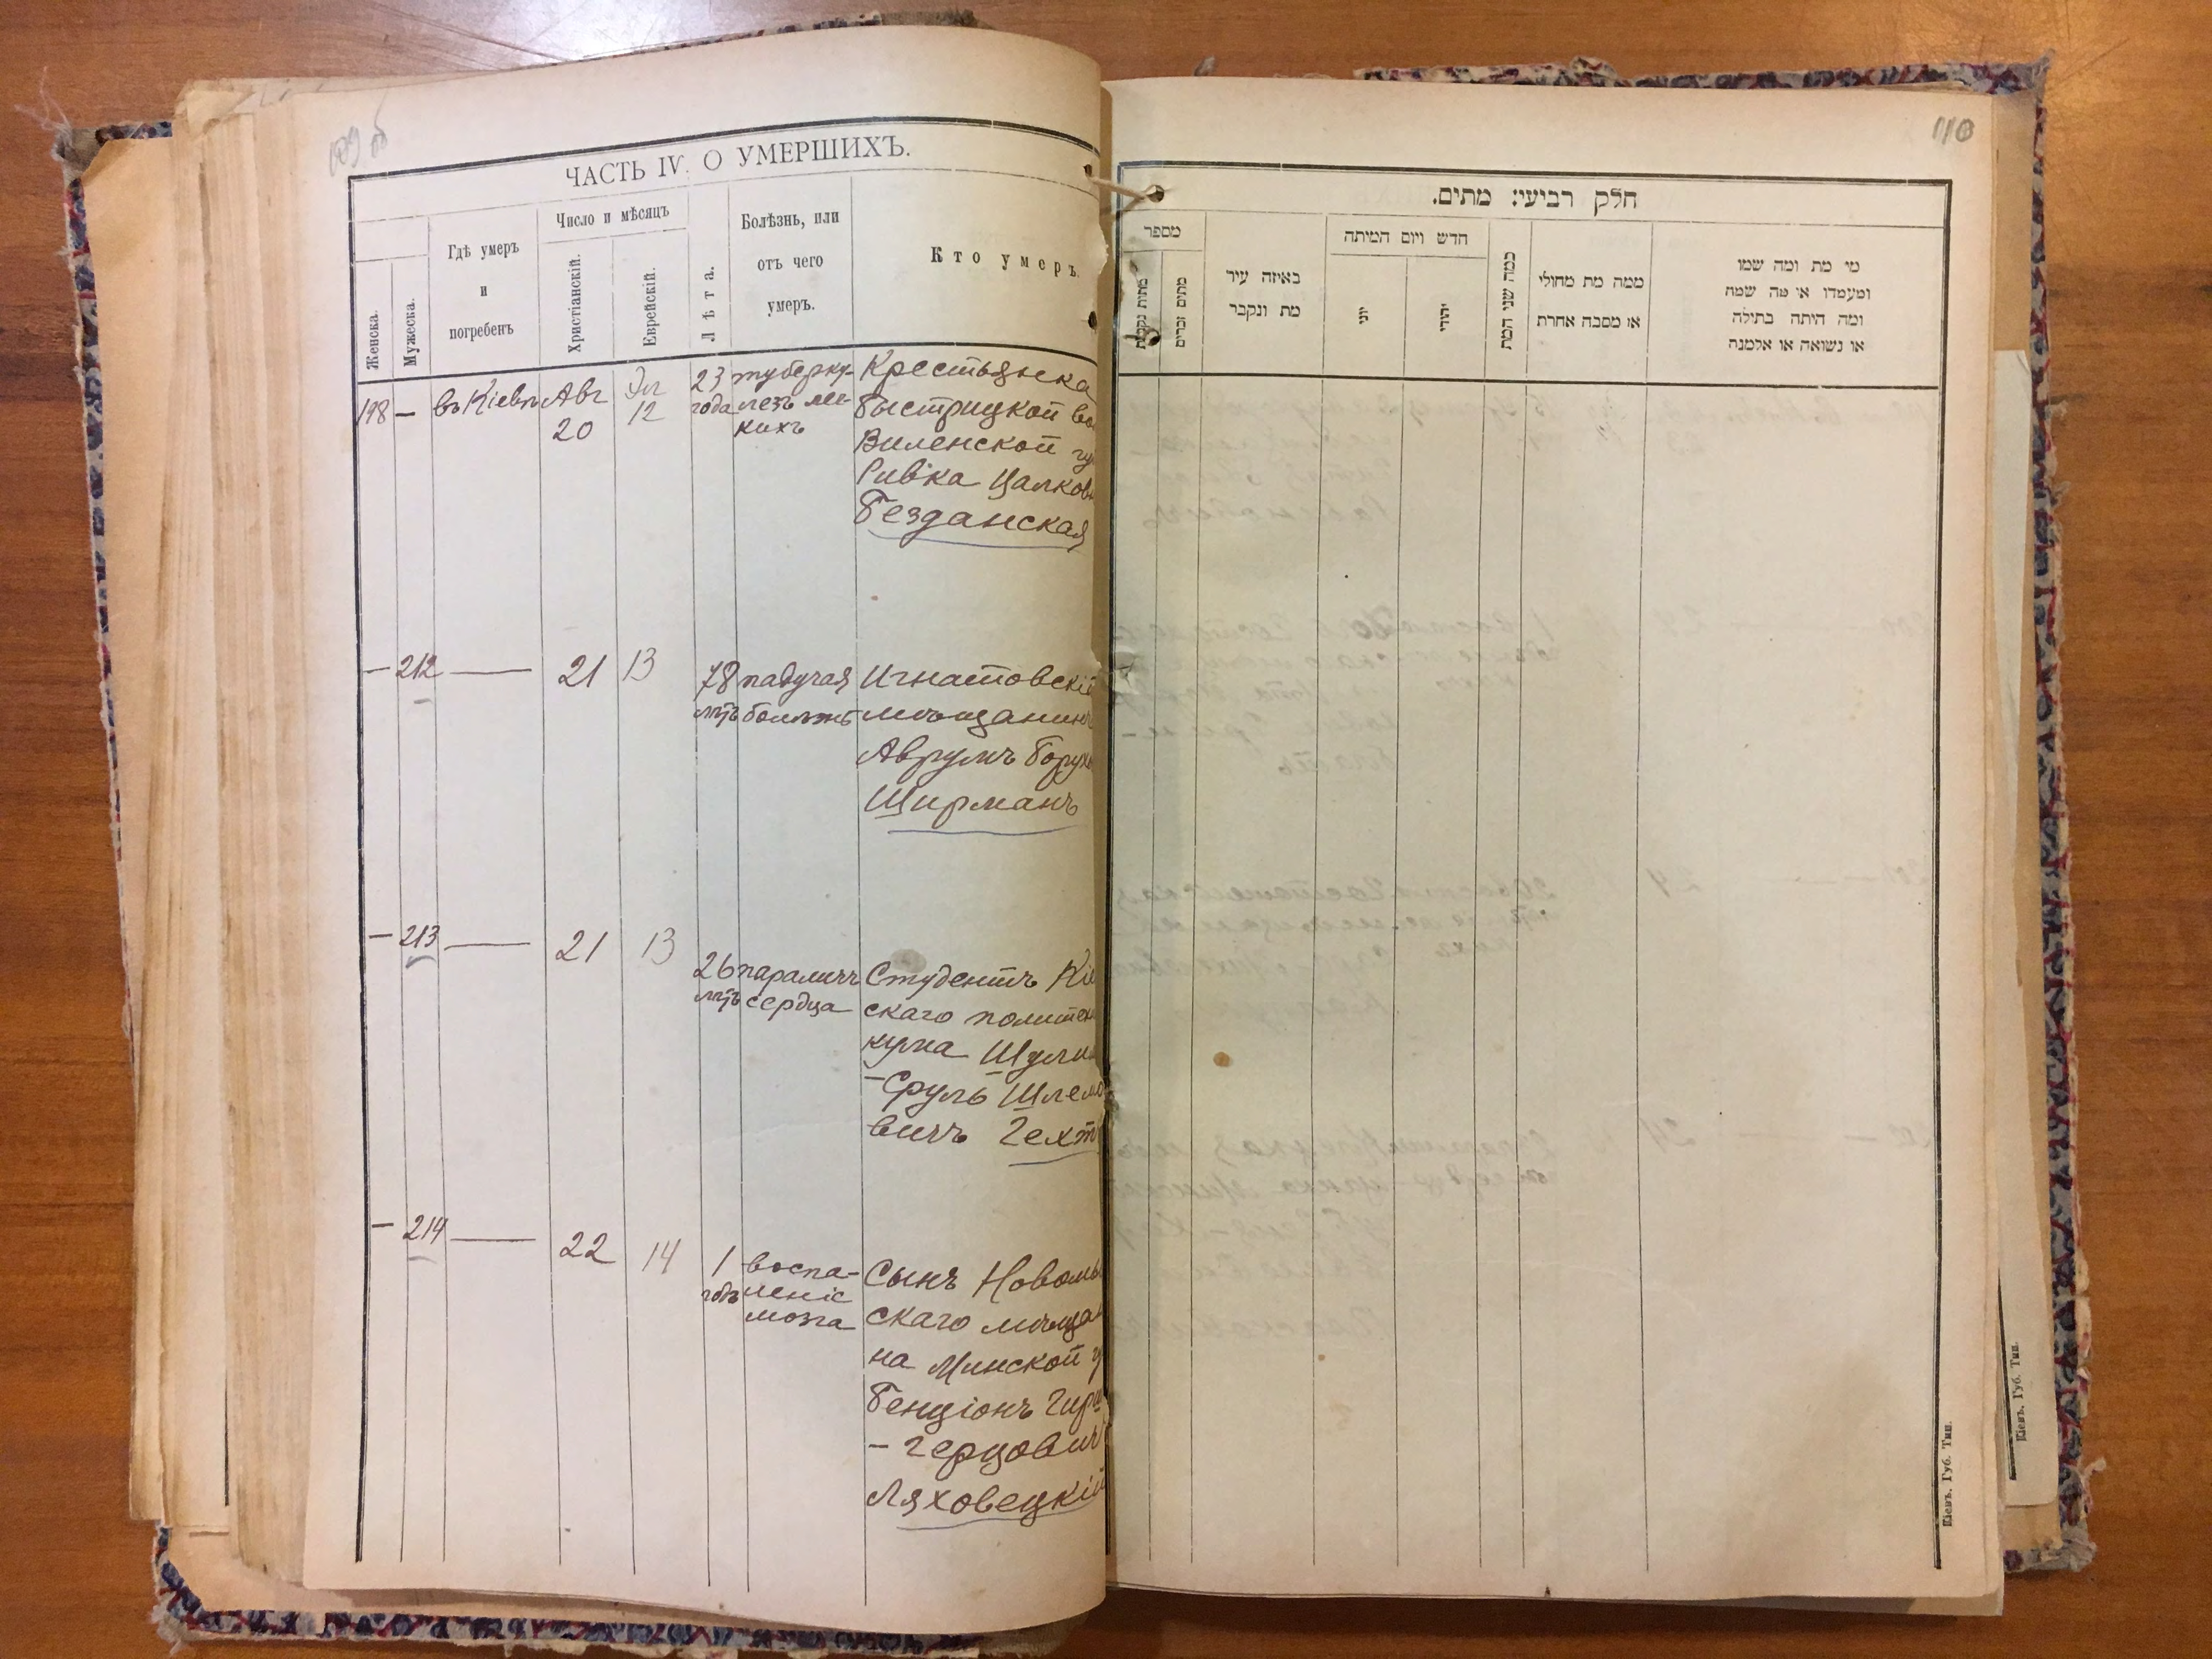 109 об
ЧАСТЬ IV. О УМЕРШИХЪ.
Женска.
Мужеска.
Гдѣ умеръ
и
погребенъ
Число и мѣсяцъ
Христіанскій.
Еврейскій.
Лѣта.
Болѣзнь, или
отъ чего
умеръ.
Кто умеръ.
198 — въ Кіевѣ Авг 20 Эл 12
23 года
туберку-
лезъ лег-
кихъ
Крестьянка
Быстрицкой во
Виленской гу
Ривка Цалков
Безданская
— 212 — 21 13
78 лѣтъ
падучая
болѣзнь
Игнатовскій
мѣщанинъ
Аврумъ Борух
Ширманъ
— 213 — 21 13
26 лѣтъ
параличъ
сердца
Студентъ Кіе
скаго политех
кума
-Сруль Шлемо
вичъ Гехт
— 214 — 22 14
1 годъ
воспа-
леніе
мозга
Сынъ
скаго мѣщан
на Минской г
Бенціонъ Гирш
-Герцович
Ляховецкій
110
חלק רביעי: מתים.
מספר
מתות נקבות
מתים זכרים
באיזה עיר
מת ונקבר
חדש ויום המיתה
יוני
יהודי
כמה שני המת
ממה מת מחולי
או מסבה אחרת
מי מת ומה שמו
ומעמדו או מה שמה
ומה היתה בתילה
או נשואה או אלמנה
Кіевъ, Губ. Тип.
Кіевъ, Губ. Тип.